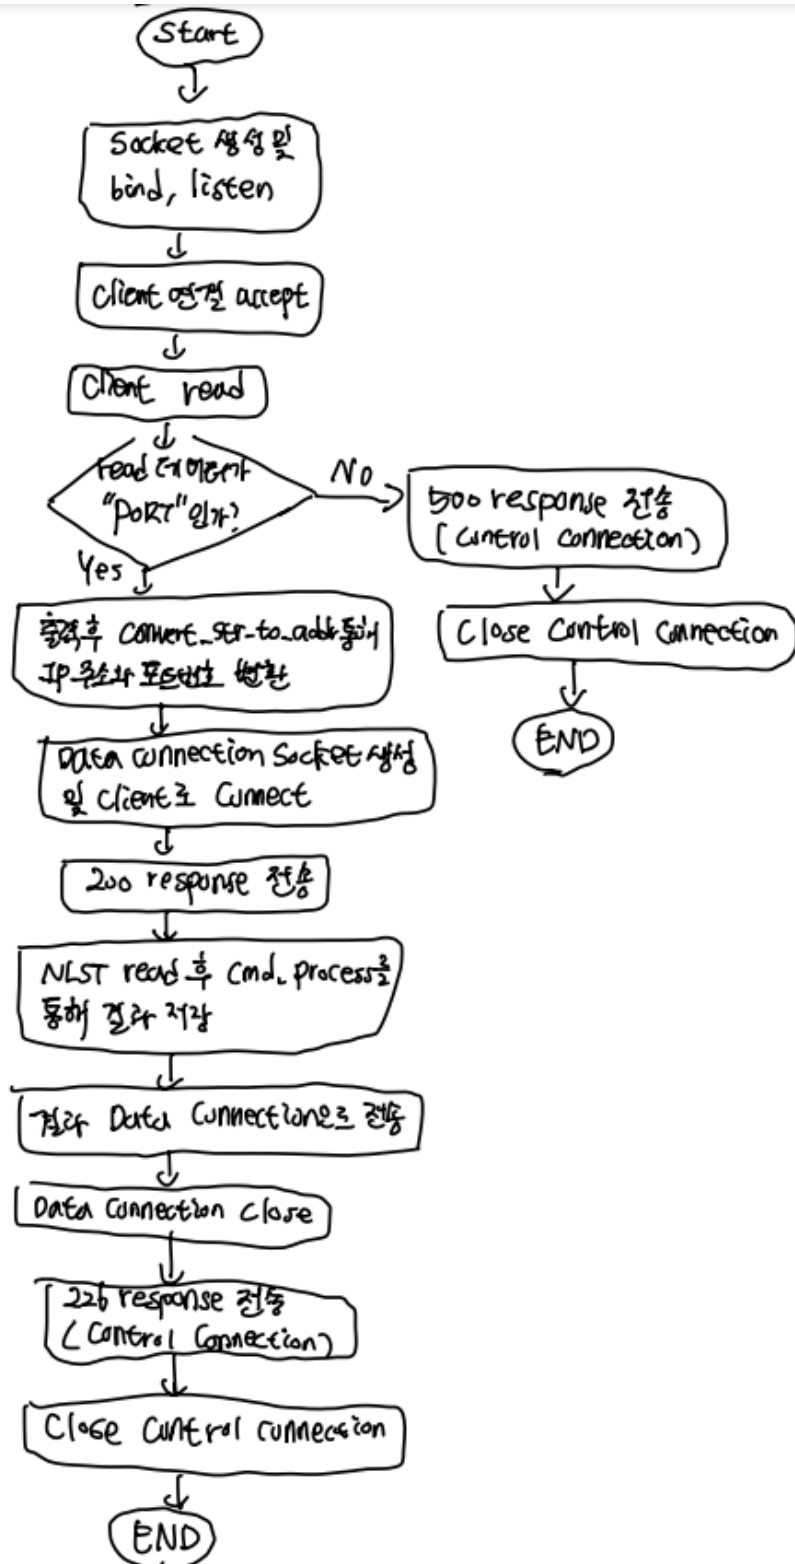 Start
Socket 생성 및
bind, listen
Client 연결 accept
Client read
read 데이터가
"PORT"인가?
No
Yes
500 response 전송
(Control Connection)
Close Control Connection
END
출력후 Convert_str_to_addr통해
IP주소와 포트번호 변환
Data connection Socket 생성
및 client로 Connect
200 response 전송
NLST read 후 cmd_process를
통해 결과 저장
결과 Data Connection으로 전송
Data Connection Close
226 response 전송
(Control Connection)
Close Control Connection
END